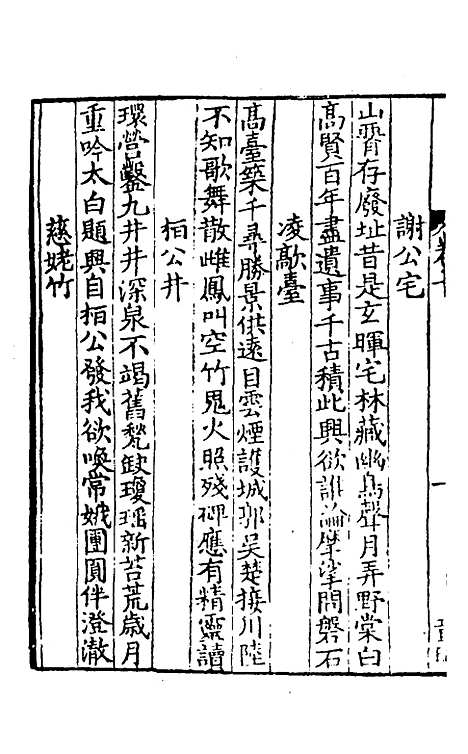 謝公宅
山霄存廢址昔是玄暉宅林藏幽鳥聲月弄野棠白
高賢百年盡遺事千古積此興欲誰論摩挲問磐石
凌歊臺
高臺築千尋勝景供遠目雲煙護城郭吳楚接川陸
不知歌舞散雌鳳叫空竹鬼火照殘碑應有精靈讀
桓公井
環營鑿九井井深泉不竭舊甃缺瓊瑶新苔荒歲月
重吟太白題興自桓公發我欲喚常娥團圓伴澄澈
慈姥竹